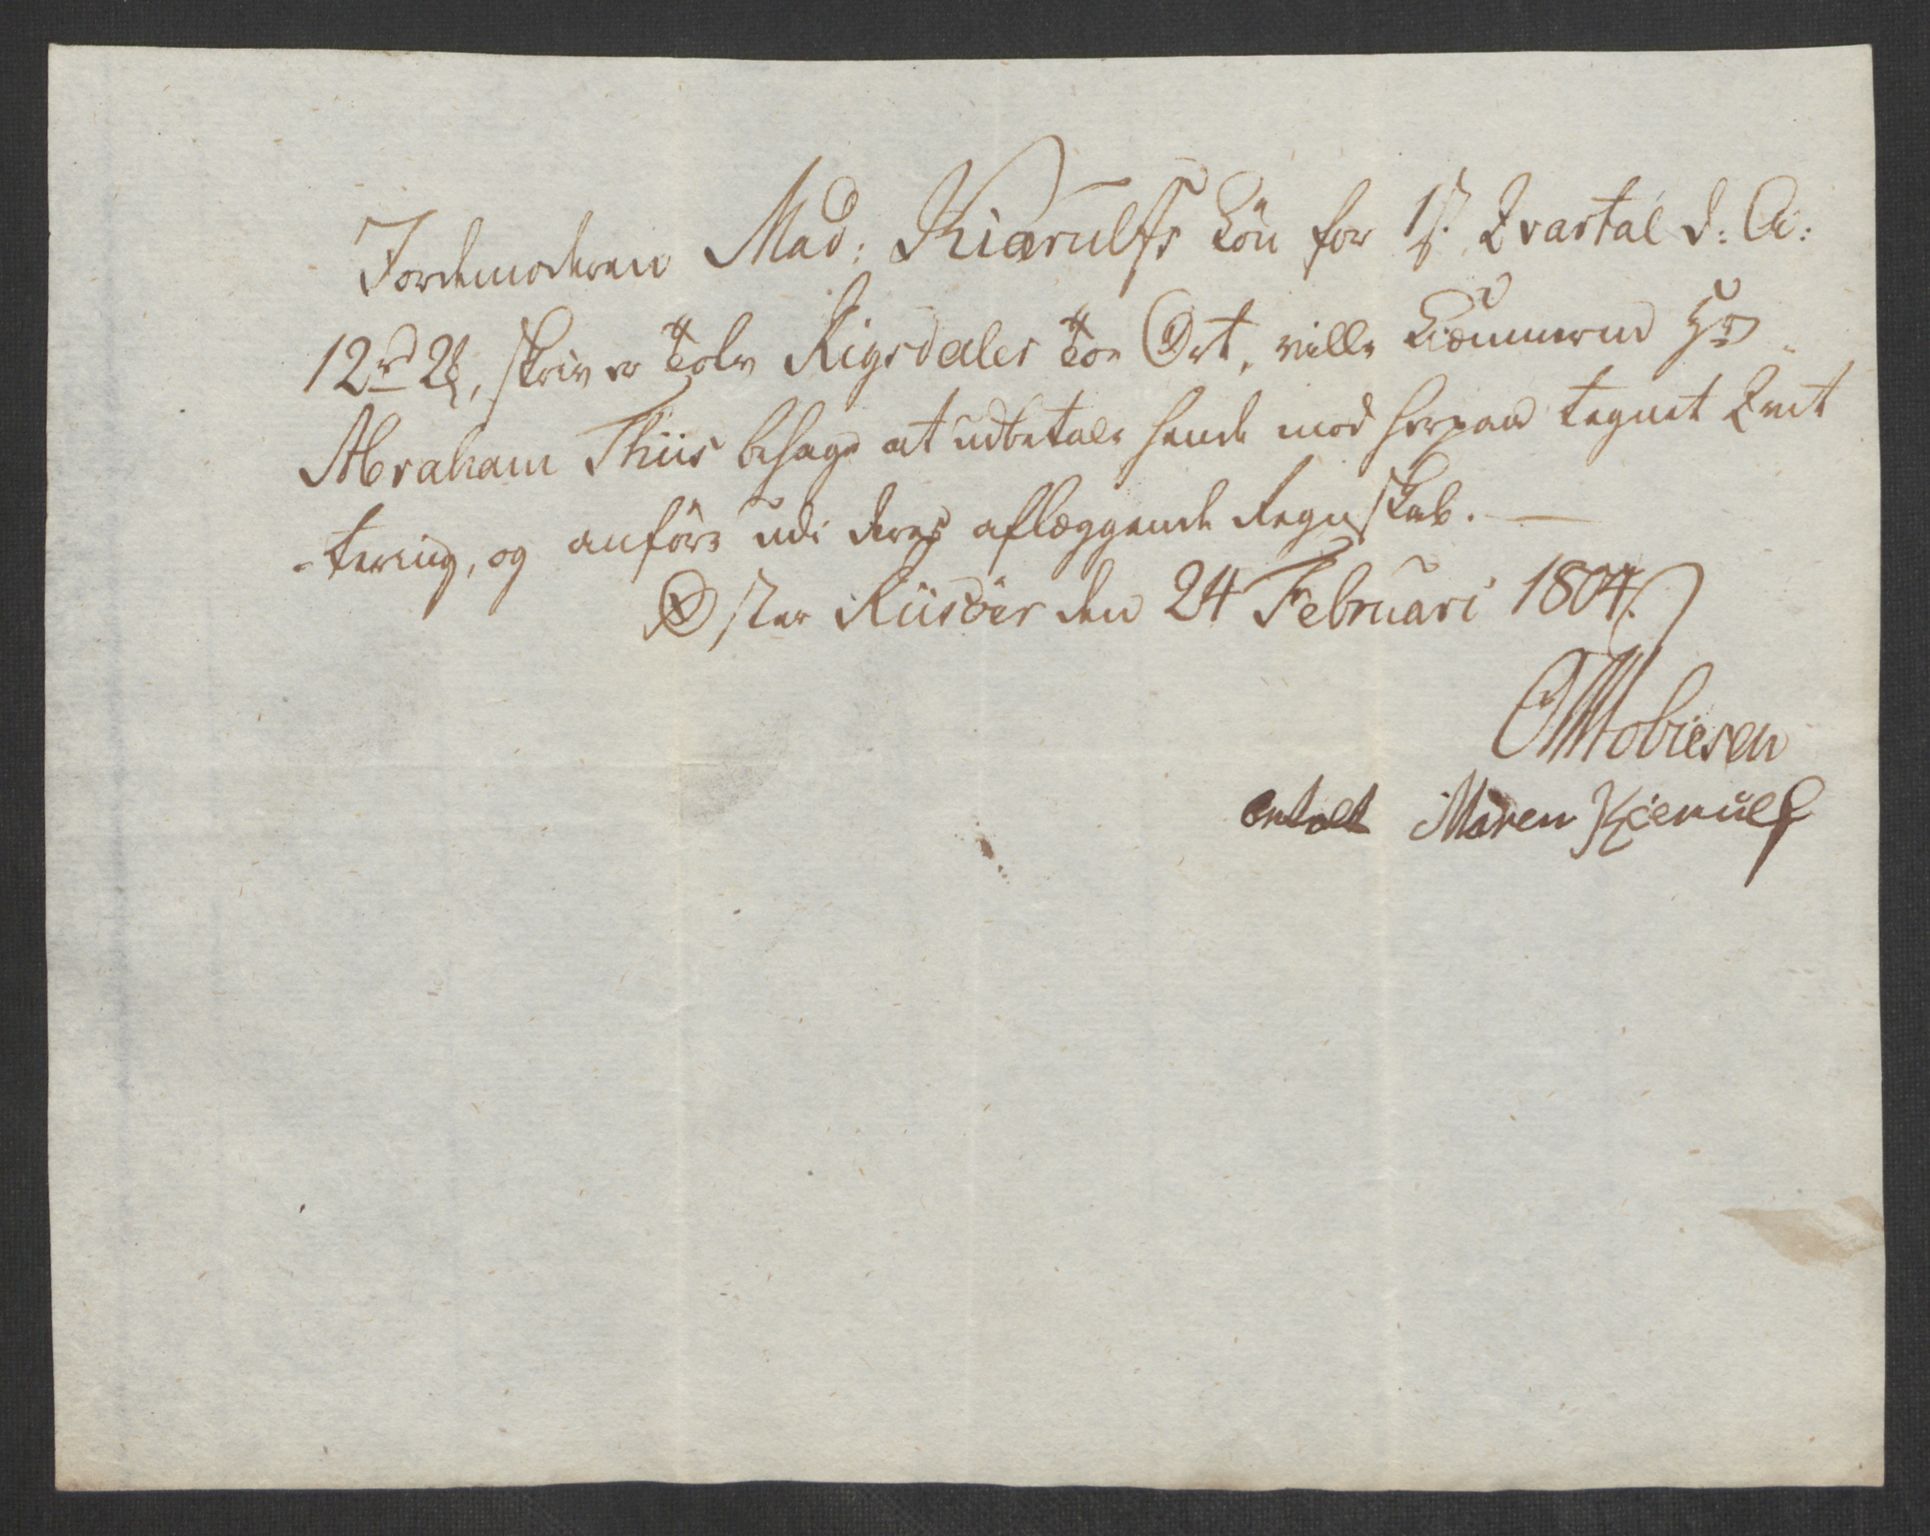 Jordemoderen Mad: Kiærulfs Løn for 1ste Qvartal d: A:
12rd 2ß, skriver Tolv Rigsdaler Toe Ort, ville Kiæmnerne Hr
Abraham Thiis behage at udbetale hende mod herpaa tegnet Qvit
-tering, og anføre udi deres aflæggende Regnskab. —
Øster Riisöer den 24 Februari 1804.
Tobiesen
betalt Maren Kierulf